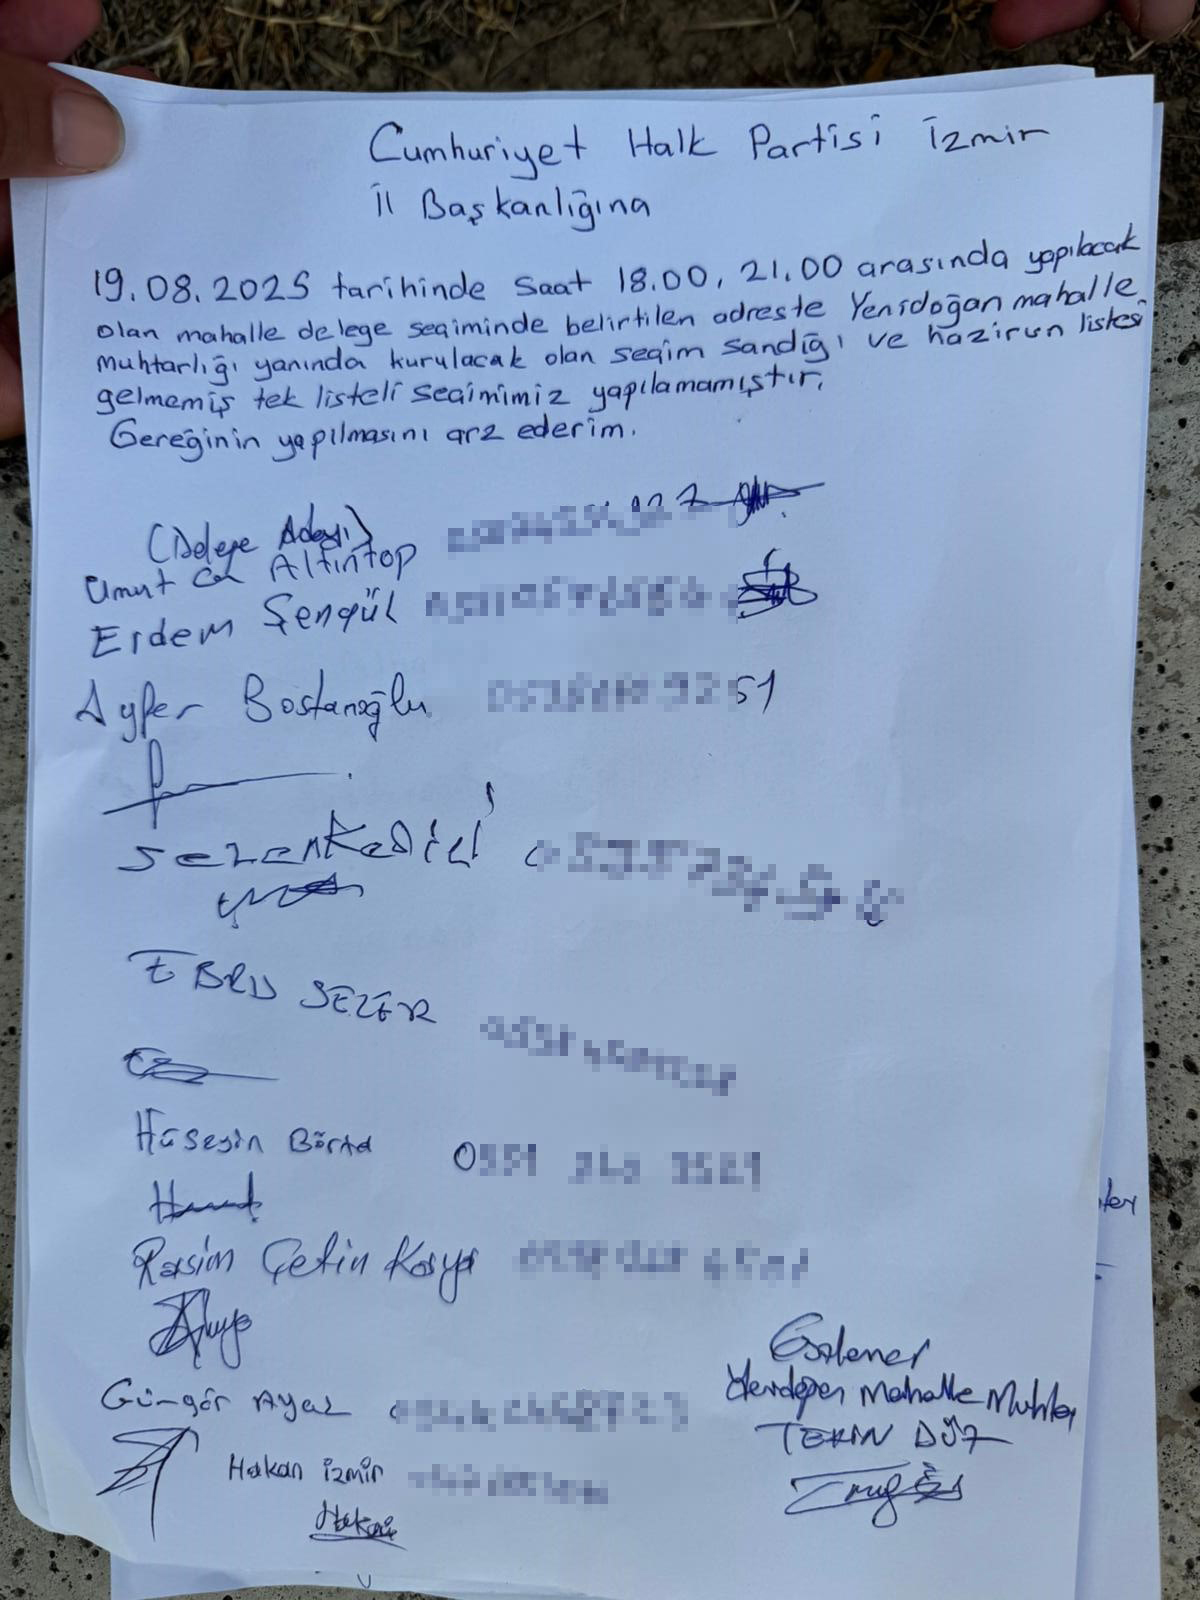 Cumhuriyet Halk Partisi İzmir
İl Başkanlığına
19.08.2025 tarihinde saat 18.00, 21.00 arasında yapılacak
olan mahalle delege seçiminde belirtilen adreste Yenidoğan mahalle
muhtarlığı yanında kurulacak olan seçim sandığı ve hazirun listesi
gelmemiş tek listeli seçimimiz yapılamamıştır.
Gereğinin yapılmasını arz ederim.
(Delege Adayı)
Umut Can Altıntop
Erdem Şengül
Ayfer Bostanoğlu 51
EBRU SEZER
Hüseyin
Rasim Çetin Kaya
Güngör
Hakan İzmir
Hakan
Mahalle Muhtarı
TEKİN DÜZ